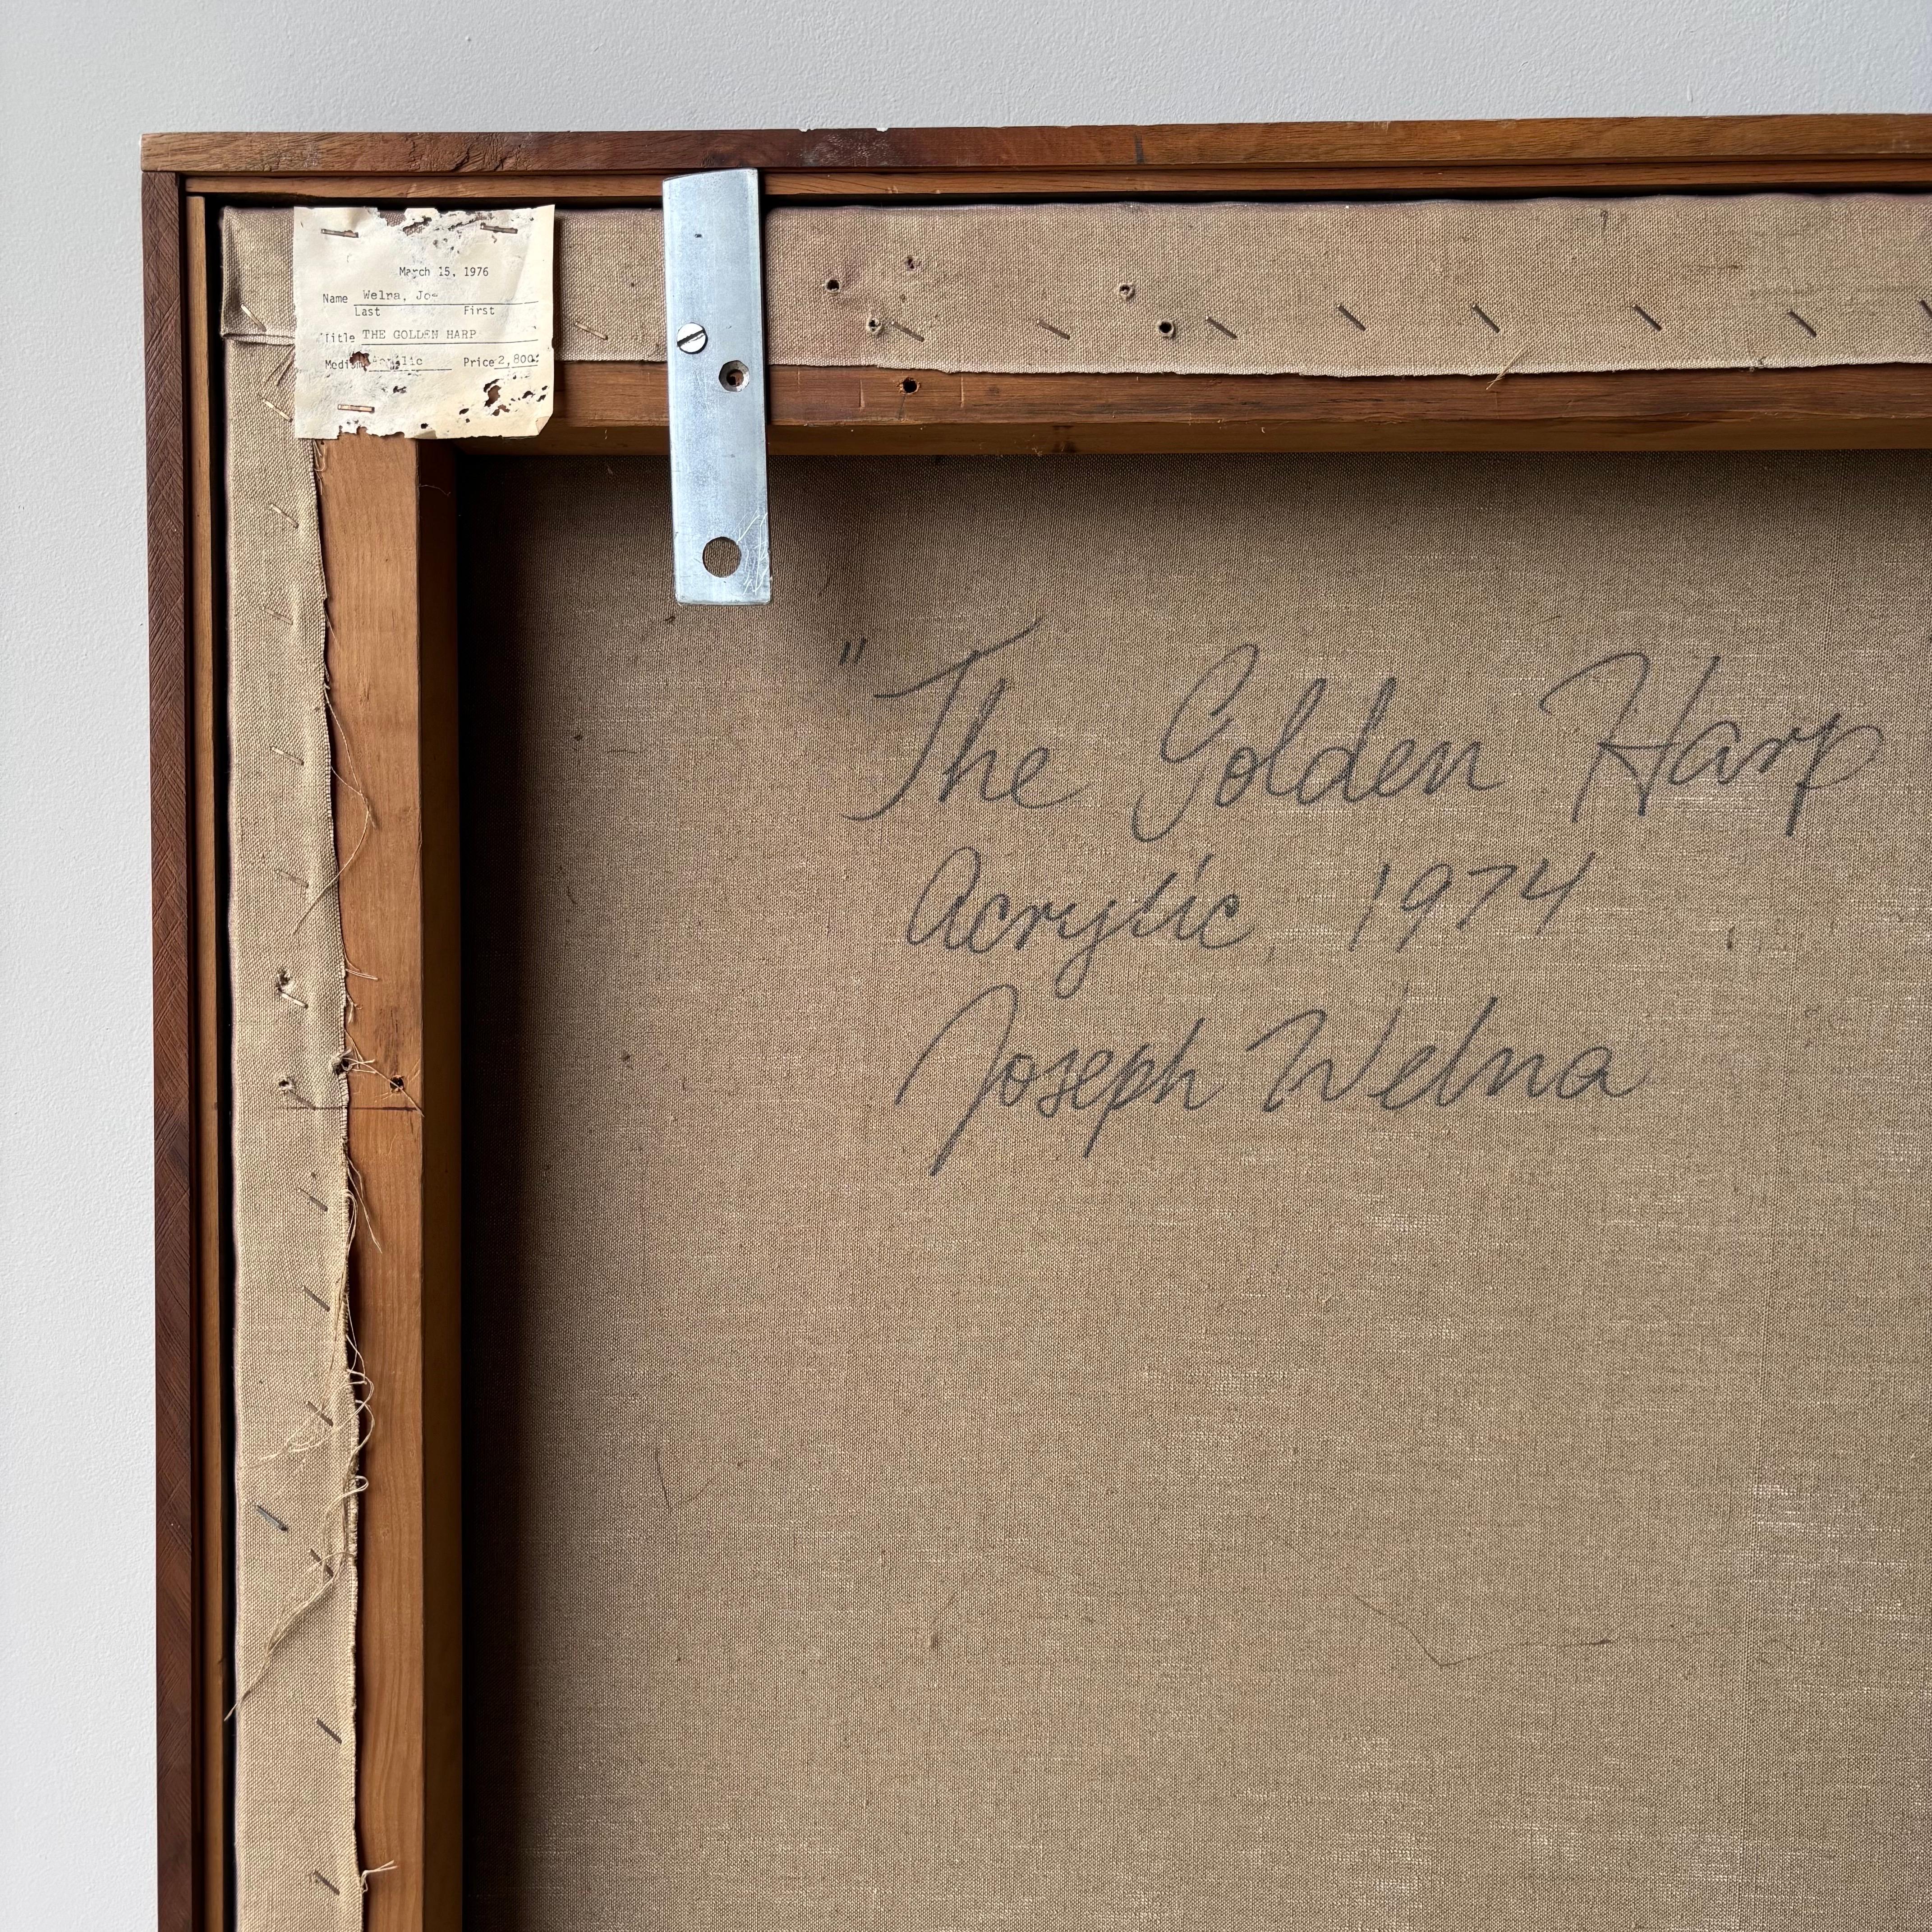 March 15, 1976
Name Welna, Joe
Last First
Title THE GOLDEN HARP
Medium Acrylic Price 2,800
" The Golden Harp
Acrylic, 1974
Joseph Welna